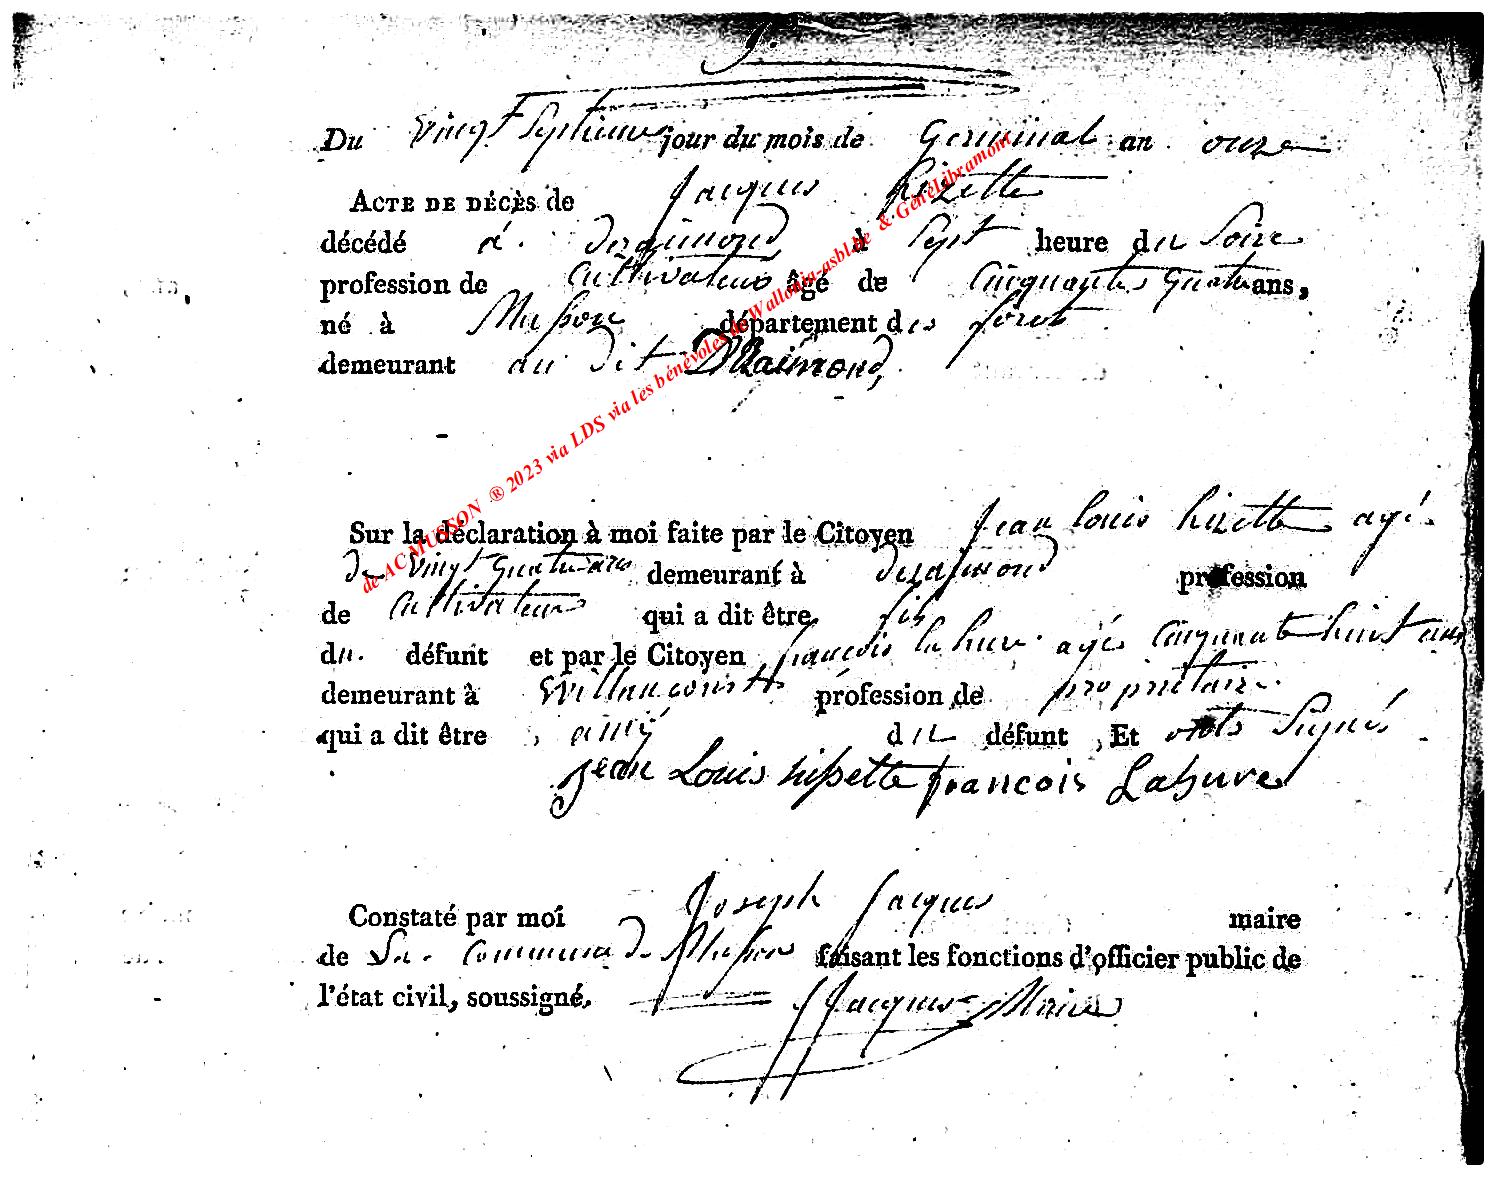 9.
Du vingt Septieme jour du mois de Germinal an onze
ACTE DE DÉCÈS de Jacques hizette
décédé à deraimond à Sept heure du Soire
profession de Cultivateur âgé de Cinquantes quatre ans,
né à Musson département des foret
demeurant au dit DRaimond,
Sur la déclaration à moi faite par le Citoyen Jean louis hizette agé
de vingt quatre ans demeurant à deraimond profession
de Cultivateur qui a dit être fils
du défunt et par le Citoyen francois la hure agé cinquante huit ans
demeurant à Willancourt profession de proprietaire
qui a dit être amÿ du défunt Et onts Signés
jean Louis hissette francois Lahure
Constaté par moi Joseph Jacques maire
de La Commune de Musson faisant les fonctions d'officier public de
l'état civil, soussigné. J Jacques Maire
de AC MUSSON ® 2023 via LDS via les bénévoles de Wallonia-asbl.be & GénéLibramont